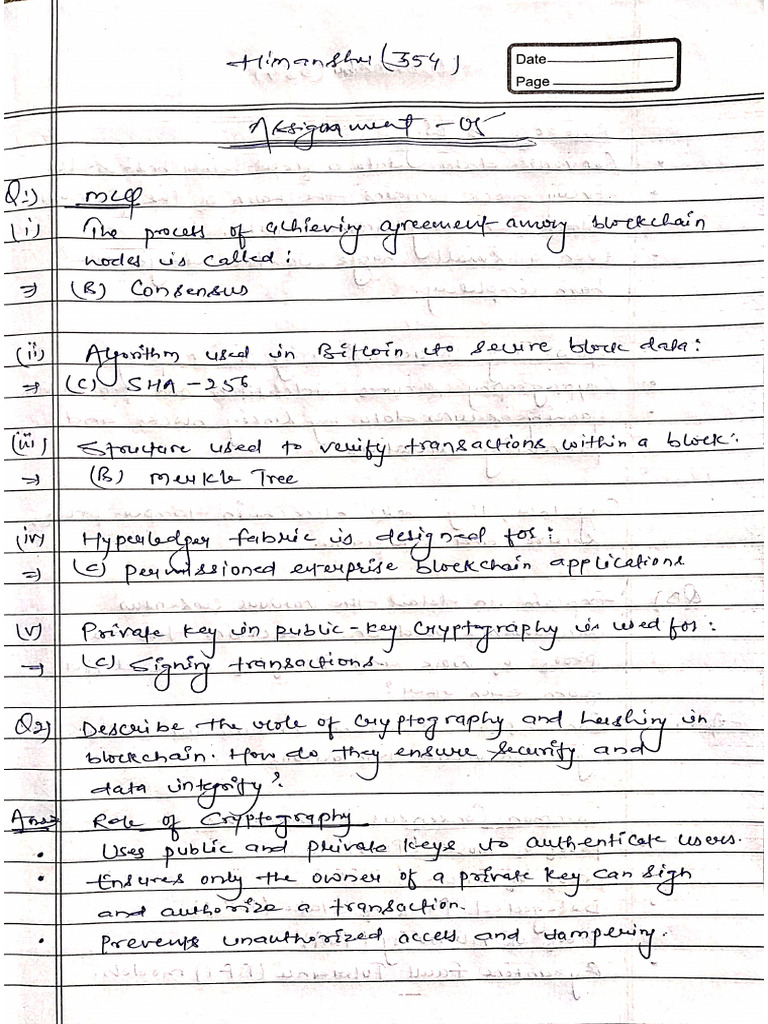 Himanshu (354)
Date
Page
Assignment - 05
Q.1) MCQ
(i) The process of achieving agreement among blockchain
nodes is called:
⇒ (B) Consensus
(ii) Algorithm used in Bitcoin to secure block data:
⇒ (C) SHA-256
(iii) Structure used to verify transactions within a block:
⇒ (B) Merkle Tree
(iv) Hyperledger fabric is designed for:
⇒ (C) permissioned enterprise blockchain applications
(v) Private key in public-key cryptography is used for:
⇒ (C) Signing transactions.
Q2) Describe the role of cryptography and hashing in
blockchain. How do they ensure security and
data integrity?
Ans: Role of Cryptography
• Uses public and private keys to authenticate users.
• Ensures only the owner of a private key can sign
and authorize a transaction.
• Prevents unauthorized access and tampering.